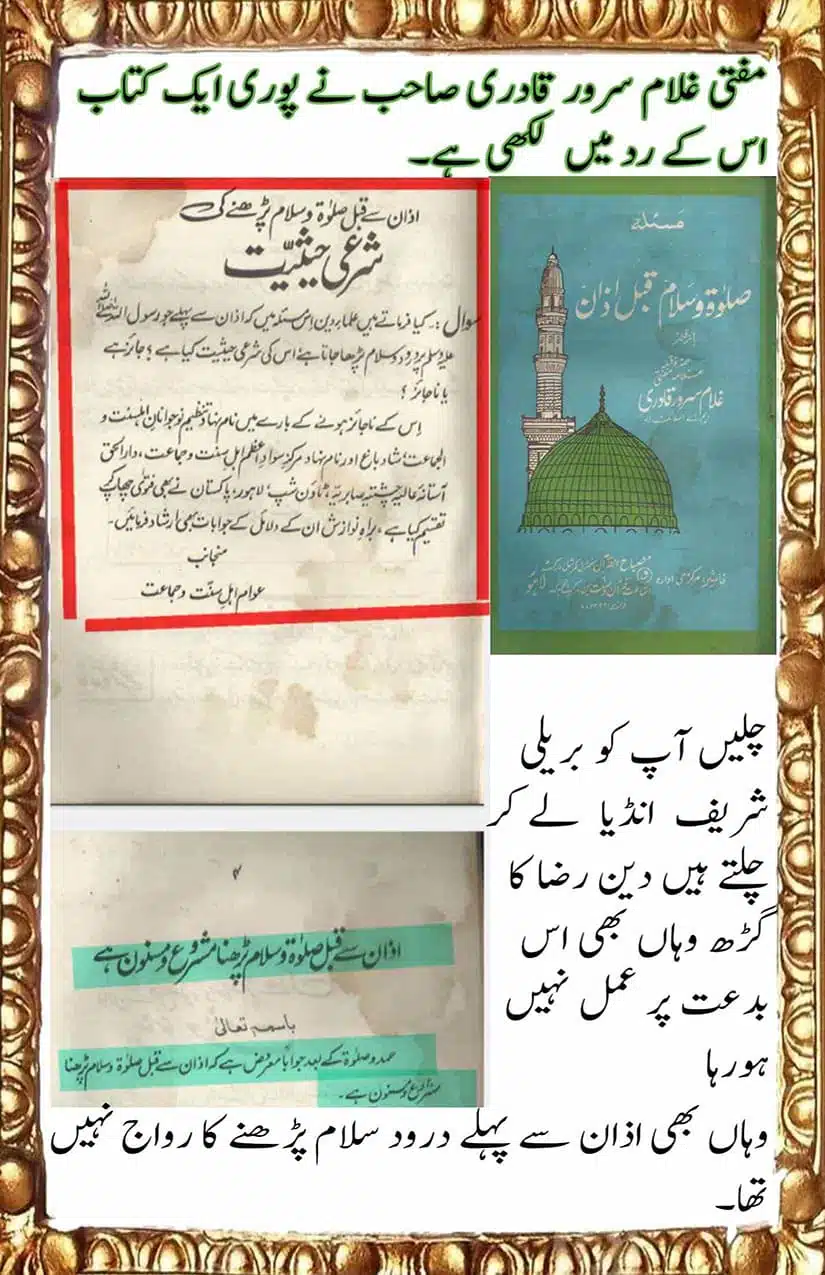 مفتی غلام سرور قادری صاحب نے پوری ایک کتاب
اس کے رد میں لکھی ہے۔
اذان سے قبل صلوٰۃ و سلام پڑھنے کی
شرعی حیثیت
سوال :۔ کیا فرماتے ہیں علماء دین اس مسئلہ میں کہ اذان سے پہلے جو رسول اللہ صلی اللہ
علیہ وسلم پر درود و سلام پڑھا جاتا ہے اس کی شرعی حیثیت کیا ہے؟ جائز ہے
یا ناجائز ؟
اس کے ناجائز ہونے کے بارے میں نام نہاد تنظیم نوجوانان اہلسنت و
الجماعت، شاد باغ اور نام نہاد مرکز سواد اعظم اہل سنت و جماعت، دارالحق
آستانہ عالیہ چشتیہ صابریہ، ٹاؤن شپ، لاہور، پاکستان نے بھی فتویٰ چھاپ کے
تقسیم کیا ہے، براہ نوازش ان کے دلائل کے جوابات بھی ارشاد فرمائیں۔
منجانب
عوام اہل سنت و جماعت
مسئلہ
صلوٰۃ و سلام قبل اذان
غلام سرور قادری
لاہور
چلیں آپ کو بریلی
شریف انڈیا لے کر
چلتے ہیں دین رضا کا
گڑھ وہاں بھی اس
بدعت پر عمل نہیں
ہورہا
۴
اذان سے قبل صلوٰۃ و سلام پڑھنا مشروع و مسنون ہے
باسمہ تعالیٰ
حمد و صلوٰۃ کے بعد جواباً معرض ہے کہ اذان سے قبل صلوٰۃ و سلام پڑھنا
مشروع و مسنون ہے۔
وہاں بھی اذان سے پہلے درود سلام پڑھنے کا رواج نہیں
تھا۔